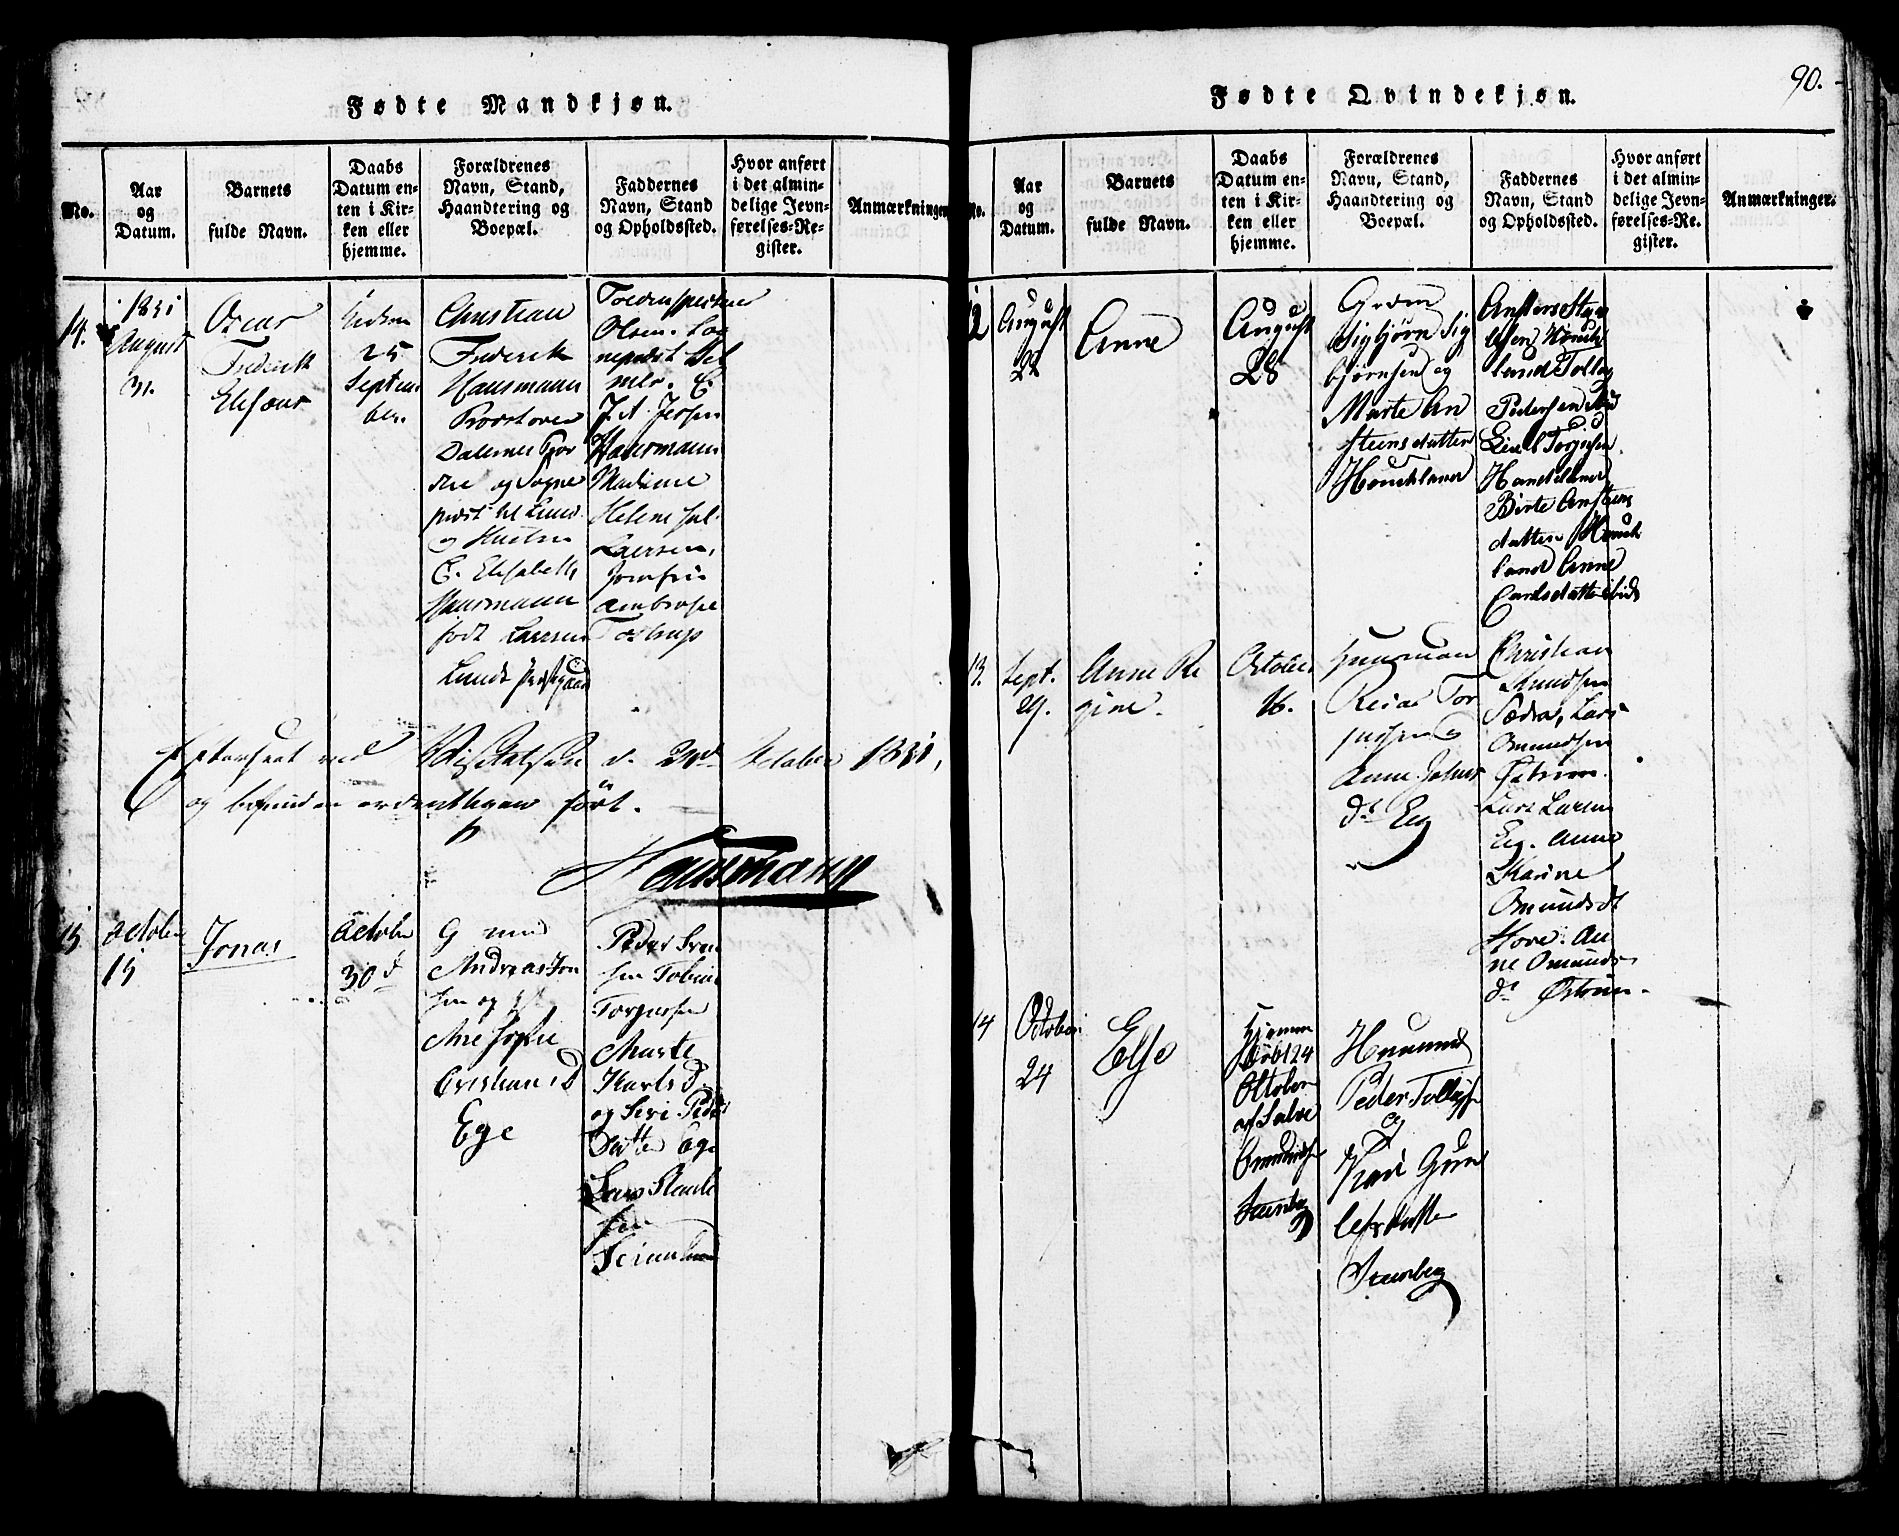 90.
Fødte Mandkjøn.
No.
Aar
og
Datum.
Barnets
fulde Navn.
Daabs
Datum en-
ten i Kir-
ken eller
hjemme.
Forældrenes
Navn, Stand,
Haandtering og
Boepæl.
Faddernes
Navn, Stand
og Opholdssted.
Hvor anført
i det almin-
delige Jevn-
førelses-Re-
gister.
Anmærkninger
14.
1831
August
31.
Oscar
Frederik
Elesæus
25
Septem
ber.
Christian
Frederik
Hausmann
Provst over
Dalernes Prov
stie og Sogne
præst til Lund
og Hustru
C. Elisabeth
Hausmann
født Laursen
Lunds Præstgaard
Olsen. Sog
nepræst
J. A. Jersin
Hausmann
Madame
Helene
Laursen,
Jomfru
Ambrosia
Tostrup
Efterseet ved Visitatsen d. October 1831,
og befunden ordentligen ført.
Hausmann
15
October
15
Jonas
October
30 d
G md
Andreas Jon
sen og
Ane Sofie
Cristians D
Ege
Peder Sven
sen Tobias
Torgersen
Marte
Karls D.
og Siri Peders
Datter Ege
Lars
sen
Fødte Qvindekjøn.
No.
Aar
og
Datum.
Barnets
fulde Navn.
Daabs
Datum en-
ten i Kir-
ken eller
hjemme.
Forældrenes
Navn, Stand,
Haandtering og
Boepæl.
Faddernes
Navn, Stand
og Opholdssted.
Hvor anført
i det almin-
delige Jevn-
førelses-Re-
gister.
Anmærkninger.
12
August
22
Anne
August
28
Grdm
Sigbjørn Sig
bjørnsen og
Marte An
steensdatter
Houkland
Houk
land Tollag
Pedersen
Torgersen
Houkland
Birte Ansteens
datter Houk
land Anne
Carlsdatter ibid
13.
Sept.
29.
Anne Re
gine.
October
16.
Huusmand
Reiar Tor
jussen og
Anne Johns
dt. Eeg
Christian
Knudsen
Lars
Omundsen
Østrem.
Lars Larsen
Eeg. Anne
Karine
Omundsdt
Hove. An
ne Omunds
dt. Østrem.
14
October
24
Else
Hjemme
døbt 24
October
af Salve
Omundsen
Steenberg
Huusmd
Peder Tollefs
og
Kari Gun
lefsdatter
Steenberg